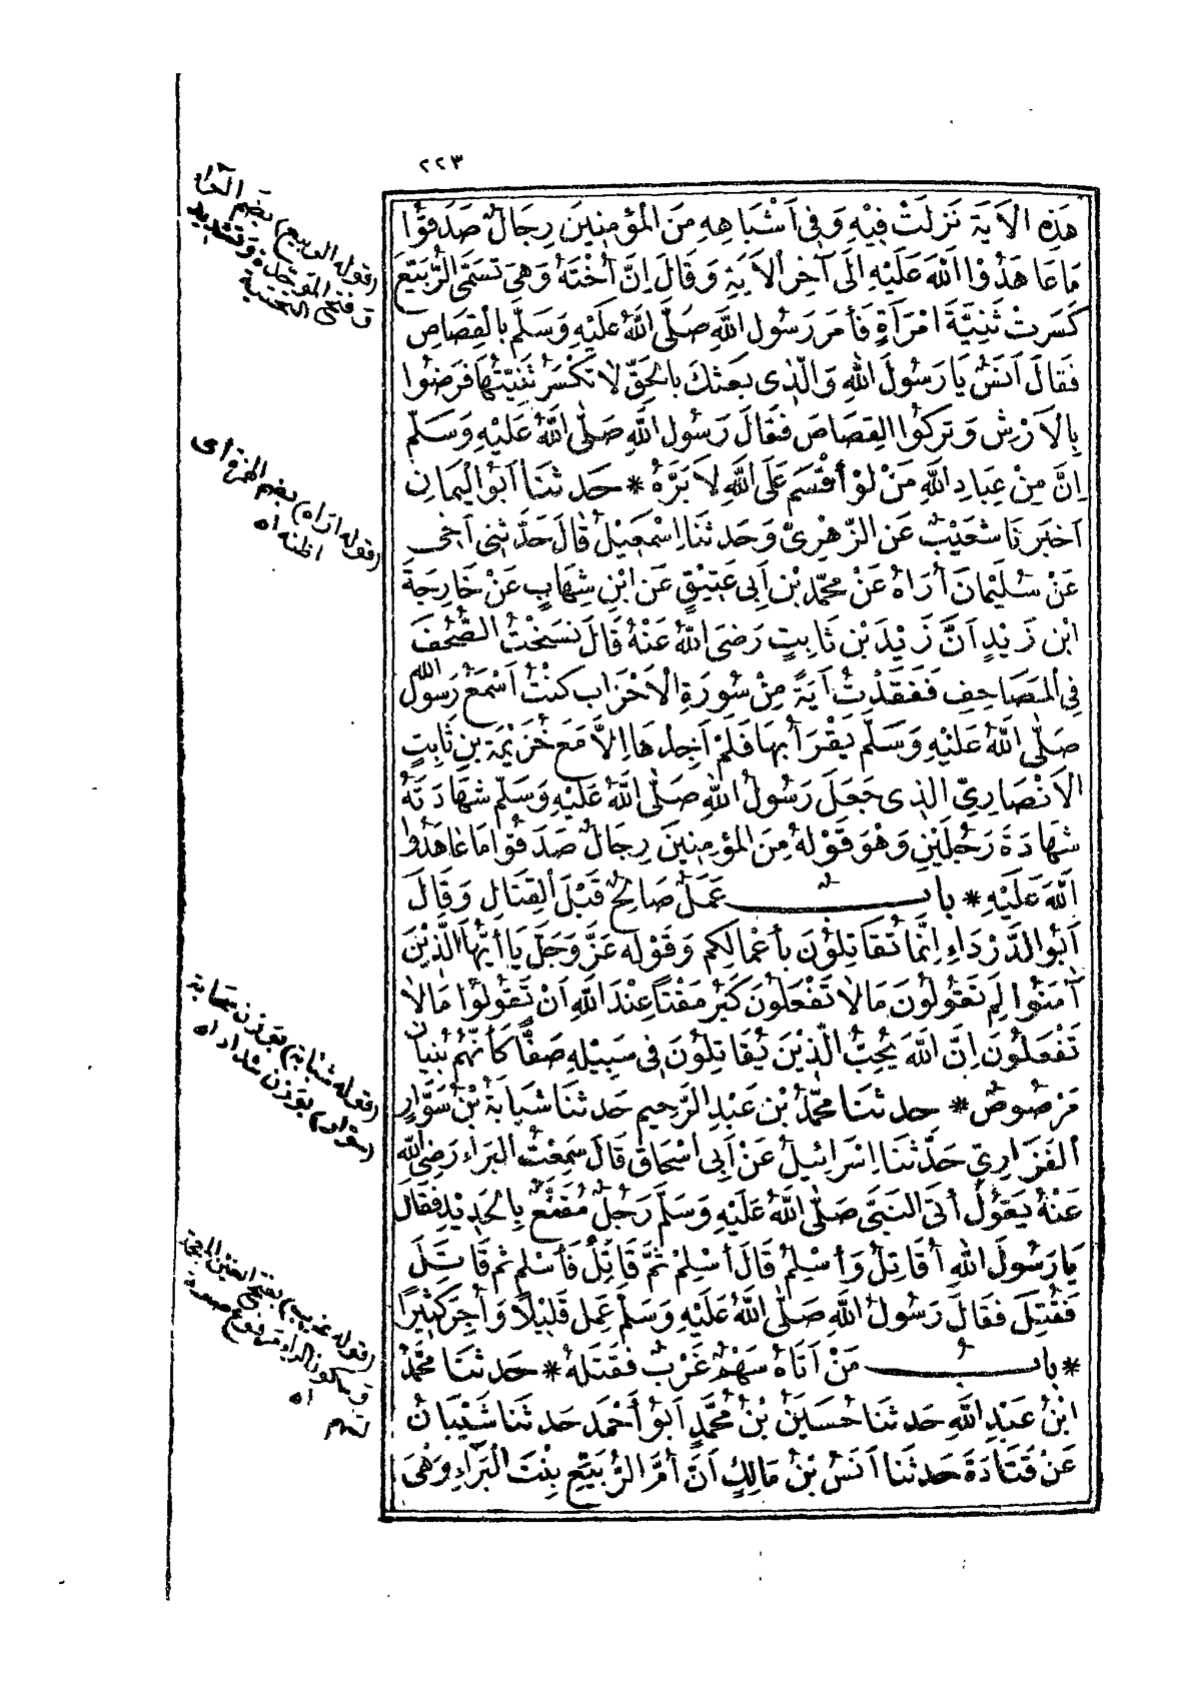 ٢٢٣
هَذِهِ الْآيَةَ نَزَلَتْ فِيْهِ وَفِى اَشْبَاهِهِ مِنَ الْمُؤْمِنِيْنَ رِجَالٌ صَدَقُوْا
مَا عَاهَدُوْا اللّٰهَ عَلَيْهِ اِلَى آخِرِ الْاَيَةِ وَقَالَ اِنَّ اُخْتَهُ وَهِىَ تُسَمَّى الرُّبَيِّعَ
كَسَرَتْ ثَنِيَّةَ امْرَأَةٍ فَأَمَرَ رَسُوْلُ اللّٰهِ صَلَّى اللّٰهُ عَلَيْهِ وَسَلَّمَ بِالْقِصَاصِ
فَقَالَ اَنَسٌ يَا رَسُوْلَ اللّٰهِ وَالَّذِى بَعَثَكَ بِالْحَقِّ لَا تُكْسَرُ ثَنِيَّتُهَا فَرَضُوْا
بِالْاَرْشِ وَتَرَكُوْا الْقِصَاصَ فَقَالَ رَسُوْلُ اللّٰهِ صَلَّى اللّٰهُ عَلَيْهِ وَسَلَّمَ
اِنَّ مِنْ عِبَادِ اللّٰهِ مَنْ لَوْ أَقْسَمَ عَلَى اللّٰهِ لَاَبَرَّهُ * حَدثَنَا اَبُو الْيَمَانِ
اَخْبَرَنَا شُعَيْبٌ عَنِ الزُّهْرِىِّ وَحَدثَنَا اِسْمٰعِيْلُ قَالَ حَدَّثَنِى اَخِى
عَنْ سُلَيْمَانَ أُرَاهُ عَنْ مُحَمَّدِ بْنِ اَبِى عَتِيْقٍ عَنِ ابْنِ شِهَابٍ عَنْ خَارِجَةَ
ابْنِ زَيْدٍ اَنَّ زَيْدَ بْنَ ثَابِتٍ رَضِىَ اللّٰهُ عَنْهُ قَالَ نَسَخْتُ الصُّحُفَ
فِى الْمَصَاحِفِ فَفَقَدْتُ آيَةً مِنْ سُوْرَةِ الْاَحْزَابِ كُنْتُ اَسْمَعُ رَسُوْلَ اللّٰهِ
صَلَّى اللّٰهُ عَلَيْهِ وَسَلَّمَ يَقْرَأُ بِهَا فَلَمْ اَجِدْهَا اِلَّا مَعَ خُزَيْمَةَ بْنِ ثَابِتٍ
الْاَنْصَارِيِّ الَّذِى جَعَلَ رَسُوْلُ اللّٰهِ صَلَّى اللّٰهُ عَلَيْهِ وَسَلَّمَ شَهَادَتَهُ
شَهَادَةَ رَجُلَيْنِ وَهُوَ قَوْلُهُ مِنَ الْمُؤْمِنِيْنَ رِجَالٌ صَدَقُوْا مَا عَاهَدُوْا
اللّٰهَ عَلَيْهِ * بابٌ عَمَلٌ صَالِحٌ قَبْلَ الْقِتَالِ وَقَالَ
اَبُو الدَّرْدَاءِ اِنَّمَا تُقَاتِلُوْنَ بِأَعْمَالِكُمْ وَقَوْلُهُ عَزَّ وَجَلَّ يَا أَيُّهَا الَّذِيْنَ
آمَنُوْا لِمَ تَقُوْلُوْنَ مَالَا تَفْعَلُوْنَ كَبُرَ مَقْتًا عِنْدَ اللّٰهِ اَنْ تَقُوْلُوْا مَالَا
تَفْعَلُوْنَ اِنَّ اللّٰهَ يُحِبُّ الَّذِيْنَ يُقَاتِلُوْنَ فِى سَبِيْلِهِ صَفًّا كَأَنَّهُمْ بُنْيَانٌ
مَرْصُوْصٌ * حدثَنَا مُحَمَّدُ بْنُ عَبْدِ الرَّحِيمِ حَدثَنَا شَبَابَةُ بْنُ سَوَّارٍ
الْفَزَارِيُّ حَدَّثَنَا اِسْرَائِيْلُ عَنْ اَبِى اسْحَاقَ قَالَ سَمِعْتُ الْبَرَاءَ رَضِىَ اللّٰهُ
عَنْهُ يَقُوْلُ أَتَى النَّبِىَّ صَلَّى اللّٰهُ عَلَيْهِ وَسَلَّمَ رَجُلٌ مُقَنَّعٌ بِالْحَدِيْدِ فَقَالَ
يَا رَسُوْلَ اللّٰهِ أُقَاتِلُ وَأُسْلِمُ قَالَ أَسْلِمْ ثُمَّ قَاتِلْ فَأَسْلَمَ ثُمَّ قَاتَلَ
فَقُتِلَ فَقَالَ رَسُوْلُ اللّٰهِ صَلَّى اللّٰهُ عَلَيْهِ وَسَلَّمَ عَمِلَ قَلِيْلًا وَأُجِرَ كَثِيْرًا
* بابُ مَنْ اَتَاهُ سَهْمٌ غَرْبٌ فَقَتَلَهُ * حَدثَنَا مُحَمَّدُ
ابْنُ عَبْدِ اللّٰهِ حَدثَنَا حُسَيْنُ بْنُ مُحَمَّدٍ اَبُوْ أَحْمَدَ حَدثَنَا شَيْبَانُ
عَنْ قَتَادَةَ حَدثَنَا اَنَسُ بْنُ مَالِكٍ اَنَّ أُمَّ الرُّبَيِّعِ بِنْتَ الْبَرَاءِ وَهْىَ
(قوله الربيع) بضم الراء
وفتح الموحدة وتشديد
التحتية
(قوله اراه) بضم الهمزة أى
اظنه اه
(قوله شبابة) بوزن سحابة
(سوار) بوزن شداد اه
(قوله غرب) بفتح الغين المعجمة
وسكون الراء مرفوع صفة
لسهم اه